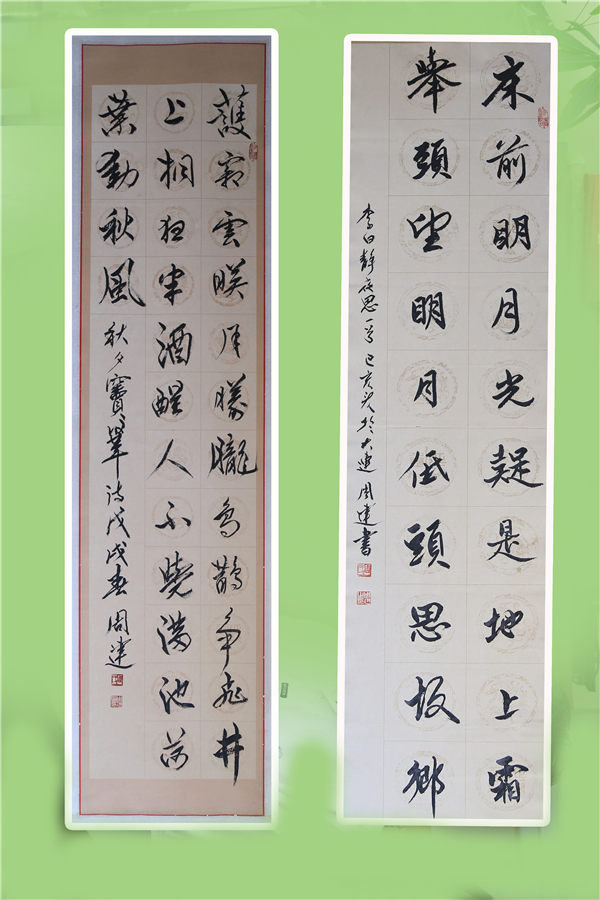 床前明月光疑是地上霜
舉頭望明月低頭思故鄉
李白靜夜思一首己亥於大連周建書
護霜雲暎月朦朧烏鵲爭飛井
上桐夜半酒醒人不曉滿池荷
葉動秋風
秋夕竇鞏詩戊戌春周建